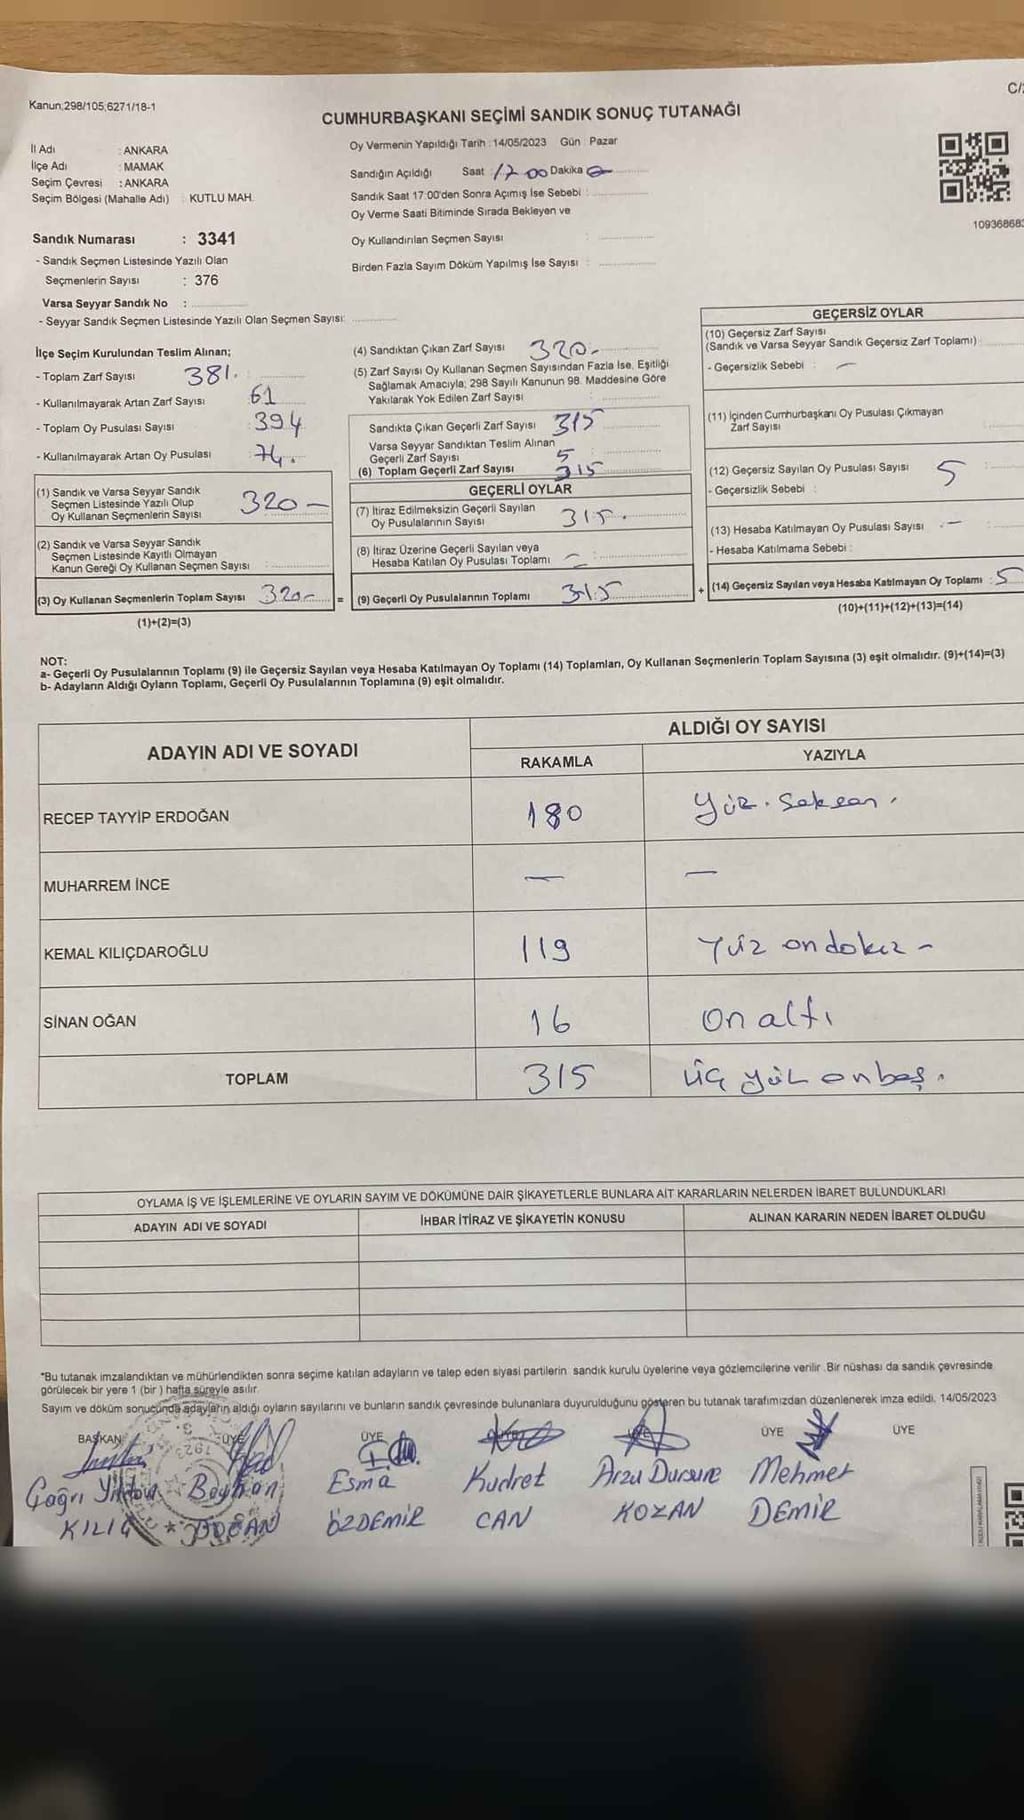 Kanun;298/105;6271/18-1
C/
CUMHURBAŞKANI SEÇİMİ SANDIK SONUÇ TUTANAĞI
İl Adı : ANKARA
İlçe Adı : MAMAK
Seçim Çevresi : ANKARA
Seçim Bölgesi (Mahalle Adı) : KUTLU MAH.
Oy Vermenin Yapıldığı Tarih : 14/05/2023 Gün : Pazar
Sandığın Açıldığı Saat : 17 00 Dakika
Sandık Saat 17:00'den Sonra Açımış İse Sebebi :
Oy Verme Saati Bitiminde Sırada Bekleyen ve
Oy Kullandırılan Seçmen Sayısı :
Birden Fazla Sayım Döküm Yapılmış İse Sayısı :
10936868
Sandık Numarası : 3341
- Sandık Seçmen Listesinde Yazılı Olan
Seçmenlerin Sayısı : 376
Varsa Seyyar Sandık No :
- Seyyar Sandık Seçmen Listesinde Yazılı Olan Seçmen Sayısı:
İlçe Seçim Kurulundan Teslim Alınan;
- Toplam Zarf Sayısı 381.
- Kullanılmayarak Artan Zarf Sayısı 61
- Toplam Oy Pusulası Sayısı : 394
- Kullanılmayarak Artan Oy Pusulası 74.
(1) Sandık ve Varsa Seyyar Sandık
Seçmen Listesinde Yazılı Olup
Oy Kullanan Seçmenlerin Sayısı 320 -
(2) Sandık ve Varsa Seyyar Sandık
Seçmen Listesinde Kayıtlı Olmayan
Kanun Gereği Oy Kullanan Seçmen Sayısı :
(3) Oy Kullanan Seçmenlerin Toplam Sayısı 320-
(1)+(2)=(3)
=
(4) Sandıktan Çıkan Zarf Sayısı 320-
(5) Zarf Sayısı Oy Kullanan Seçmen Sayısından Fazla İse, Eşitliği
Sağlamak Amacıyla; 298 Sayılı Kanunun 98. Maddesine Göre
Yakılarak Yok Edilen Zarf Sayısı :
Sandıkta Çıkan Geçerli Zarf Sayısı : 315
Varsa Seyyar Sandıktan Teslim Alınan
Geçerli Zarf Sayısı : 5
(6) Toplam Geçerli Zarf Sayısı : 315
GEÇERLİ OYLAR
(7) İtiraz Edilmeksizin Geçerli Sayılan
Oy Pusulalarının Sayısı : 315.
(8) İtiraz Üzerine Geçerli Sayılan veya
Hesaba Katılan Oy Pusulası Toplamı : -
(9) Geçerli Oy Pusulalarının Toplamı : 315
+
GEÇERSİZ OYLAR
(10) Geçersiz Zarf Sayısı
(Sandık ve Varsa Seyyar Sandık Geçersiz Zarf Toplamı) :
- Geçersizlik Sebebi : -
(11) İçinden Cumhurbaşkanı Oy Pusulası Çıkmayan
Zarf Sayısı
(12) Geçersiz Sayılan Oy Pusulası Sayısı 5
- Geçersizlik Sebebi :
(13) Hesaba Katılmayan Oy Pusulası Sayısı -
- Hesaba Katılmama Sebebi :
(14) Geçersiz Sayılan veya Hesaba Katılmayan Oy Toplamı : 5
(10)+(11)+(12)+(13)=(14)
NOT:
a- Geçerli Oy Pusulalarının Toplamı (9) ile Geçersiz Sayılan veya Hesaba Katılmayan Oy Toplamı (14) Toplamları, Oy Kullanan Seçmenlerin Toplam Sayısına (3) eşit olmalıdır. (9)+(14)=(3)
b- Adayların Aldığı Oyların Toplamı, Geçerli Oy Pusulalarının Toplamına (9) eşit olmalıdır.
ADAYIN ADI VE SOYADI
ALDIĞI OY SAYISI
RAKAMLA YAZIYLA
RECEP TAYYİP ERDOĞAN 180 Yüz. Seksen.
MUHARREM İNCE - -
KEMAL KILIÇDAROĞLU 119 Yüz on dokuz -
SİNAN OĞAN 16 on altı
TOPLAM 315 üç yüz onbeş.
OYLAMA İŞ VE İŞLEMLERİNE VE OYLARIN SAYIM VE DÖKÜMÜNE DAİR ŞİKAYETLERLE BUNLARA AİT KARARLARIN NELERDEN İBARET BULUNDUKLARI
ADAYIN ADI VE SOYADI İHBAR İTİRAZ VE ŞİKAYETİN KONUSU ALINAN KARARIN NEDEN İBARET OLDUĞU
*Bu tutanak imzalandıktan ve mühürlendikten sonra seçime katılan adayların ve talep eden siyasi partilerin sandık kurulu üyelerine veya gözlemcilerine verilir. Bir nüshası da sandık çevresinde
görülecek bir yere 1 (bir ) hafta süreyle asılır.
Sayım ve döküm sonucunda adayların aldığı oyların sayılarını ve bunların sandık çevresinde bulunanlara duyurulduğunu gösteren bu tutanak tarafımızdan düzenlenerek imza edildi. 14/05/2023
BAŞKAN ÜYE ÜYE ÜYE ÜYE ÜYE ÜYE
Çağrı Beyhan Esma Kudret Arzu Dursune Mehmet
KILIÇ DOĞAN ÖZDEMİR CAN KOZAN DEMİR